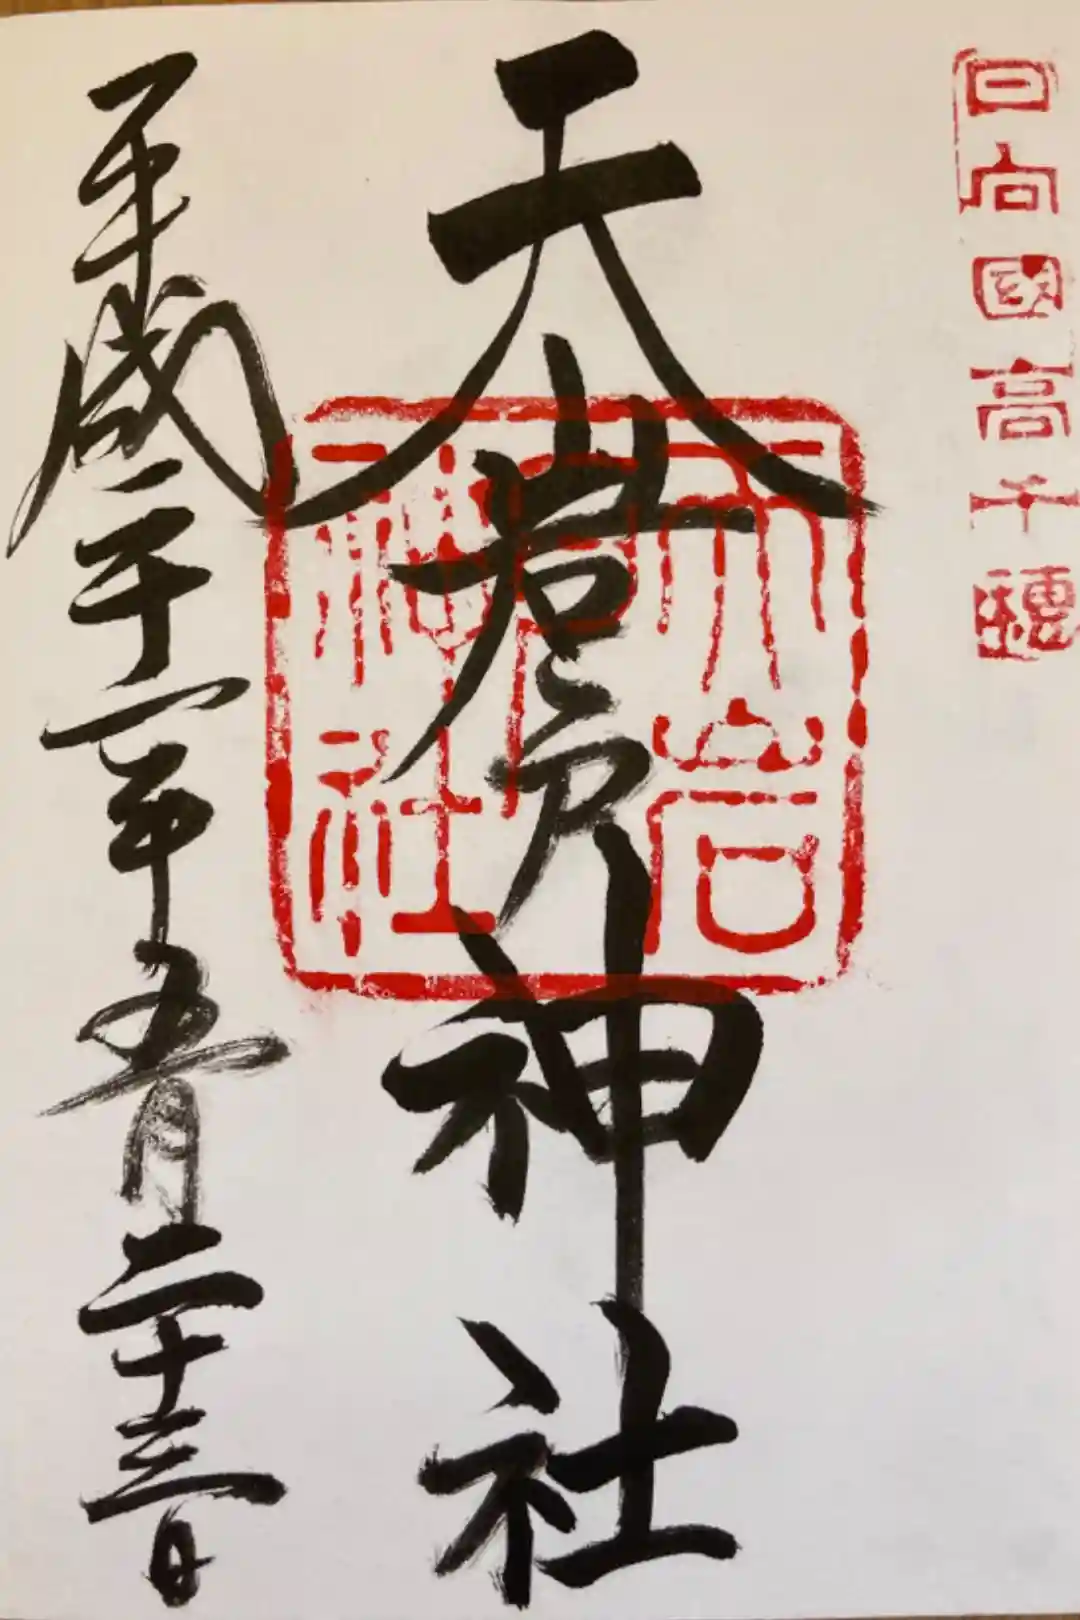 日向國高千穂
天岩戸神社
天岩戸神社
平成二十一年五月二十三日